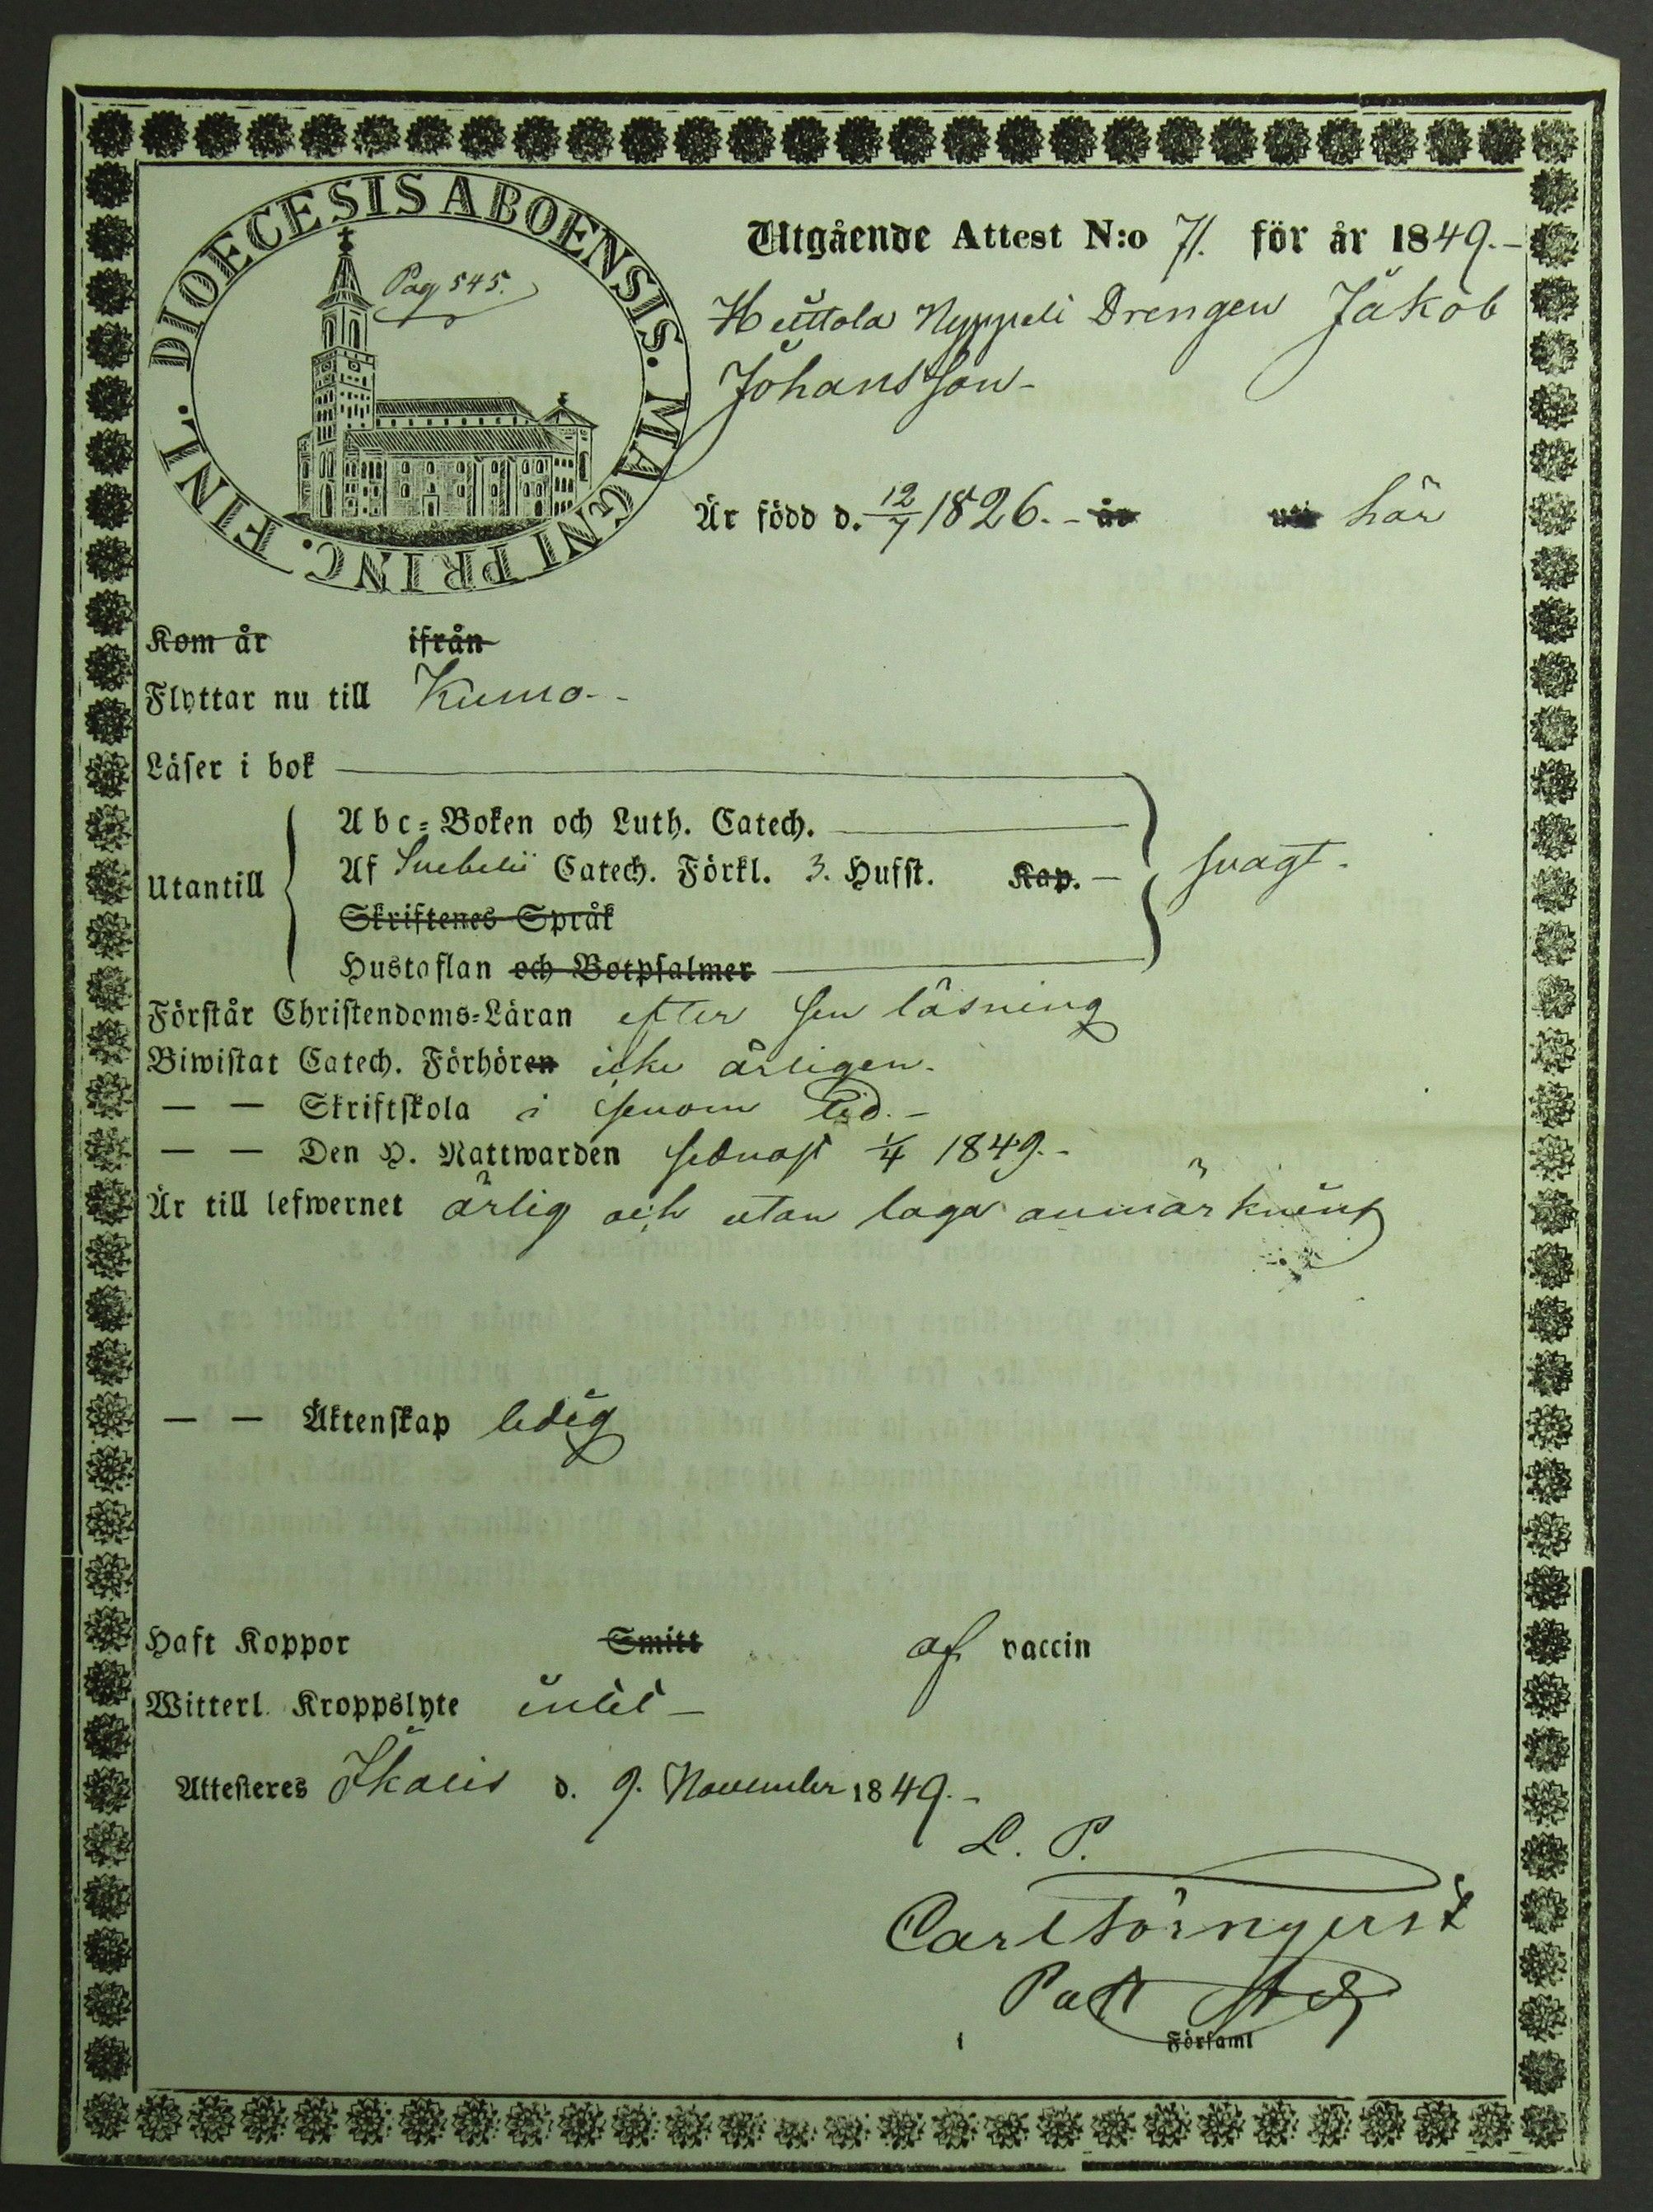 DIOECESIS ABOENSIS. MAGNI PRINC. FINL.
Pag 545.
Utgående Attest N:o 71. för år 1849.-
Heittola Nyppeli Drengen Jakob
Johansson-
Är född d. 12/7 1826.- år uti här
Kom år ifrån
Flyttar nu till Kumo.-
Läser i bok
Utantill
Abc-Boken och Luth. Catech.
Af Svebelii Catech. Förkl. 3. Hufst. Kap. - svagt.
Skriftenes Språk
Hustaflan och Botpsalmer
Förstår Christendoms-Läran efter sin läsning
Biwistat Catech. Förhören icke årligen.
— — Skriftskola i sinom tid.-
— — Den H. Nattwarden sednast 1/4 1849.-
Är till lefwernet ärlig och utan laga anmärkning
— — Äktenskap ledig
Haft Koppor Smitt af vaccin
Witterl. Kroppslyte intet -
Attesteres Ikalis d. 9. November 1849.-
L. P.
Carl Törnqvist
i Församl